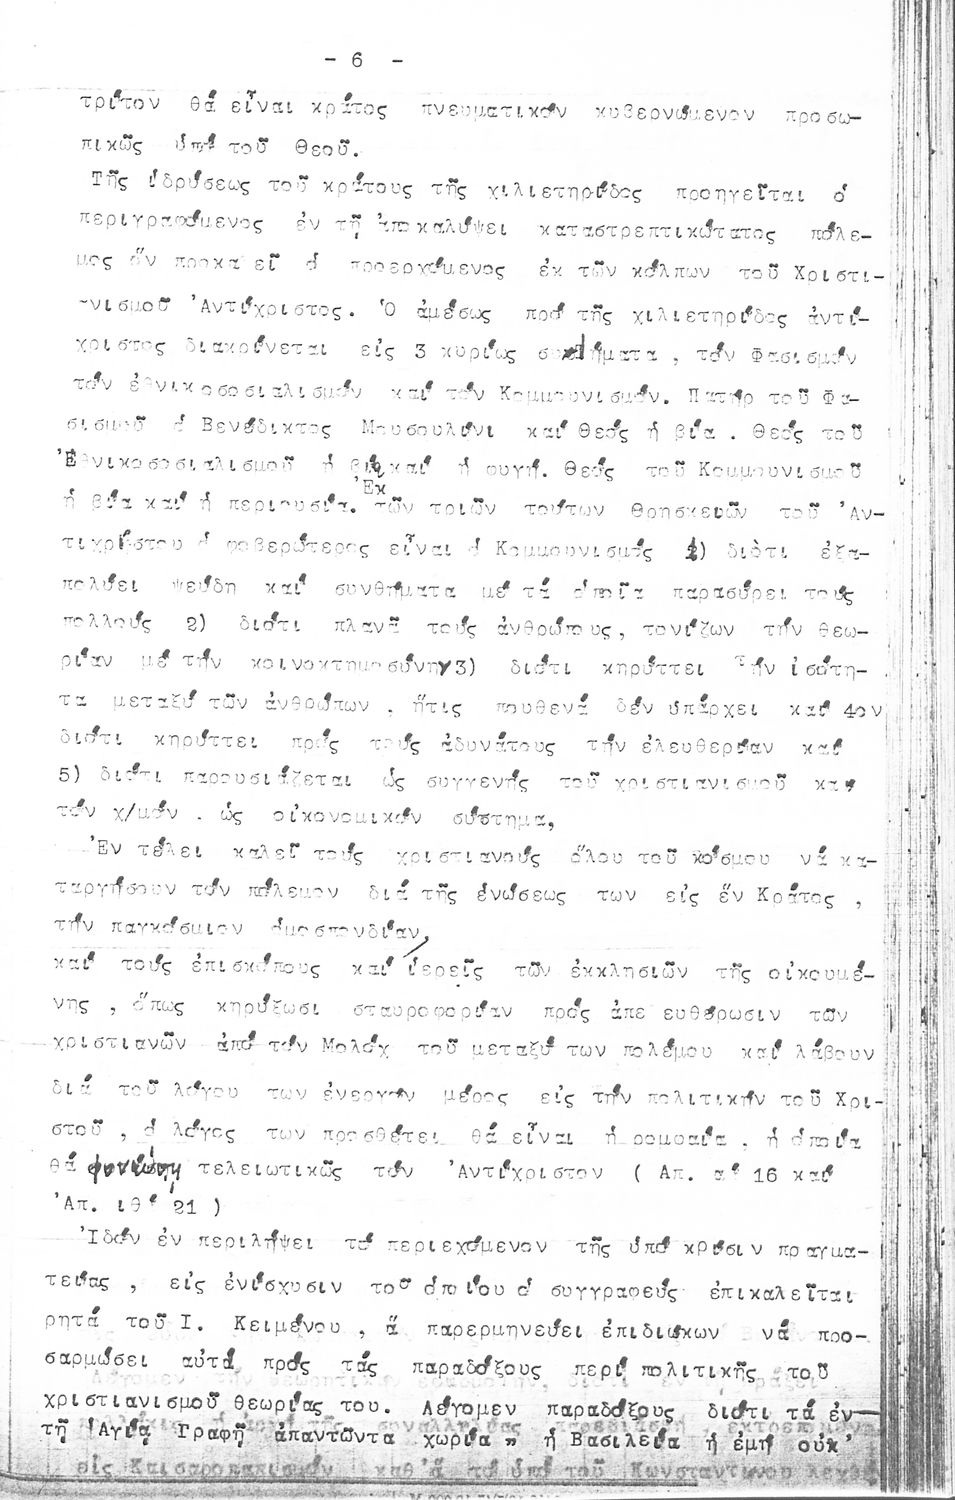 - 6 -
τρίτον θά εἶναι κράτος πνευματικόν κυβερνώμενον προσω-
πικῶς ὑπό τοῦ Θεοῦ.
Τῆς ἱδρύσεως τοῦ κράτους τῆς χιλιετηρίδος προηγεῖται ὁ
περιγραφόμενος ἐν τῇ ἀποκαλύψει καταστρεπτικώτατος πόλε-
μος ὅν προκα εῖ ὁ προερχόμενος ἐκ τῶν κόλπων τοῦ Χριστι-
νισμοῦ 'Αντίχριστος. Ὁ ἀμέσως πρό τῆς χιλιετηρίδος ἀντί-
χριστος διακρίνεται εἰς 3 κυρίως συστήματα , τόν Φασισμόν
τόν ἐθνικοσοσιαλισμόν καί τόν Κομμουνισμόν. Πατήρ τοῦ Φα-
σισμοῦ ὁ Βενέδικτος Μουσουλίνι καί Θεός ἡ βία . Θεός τοῦ
'Εθνικοσοσιαλισμοῦ ἡ βία καί ἡ φυγή. Θεός τοῦ Κομμουνισμοῦ
ἡ βία καί ἡ περιουσία. 'Εκ τῶν τριῶν τούτων Θρησκειῶν τοῦ 'Αν-
τιχρίστου ὁ φοβερώτερος εἶναι ὁ Κομμουνισμός 1) διότι ἐξα-
πολύει ψεύδη καί συνθήματα μέ τά ὁποῖα παρασύρει τούς
πολλούς 2) διότι πλανᾶ τούς ἀνθρώπους, τονίζων τήν θεω-
ρίαν μέ τήν κοινοκτημοσύνην 3) διότι κηρύττει τήν ἰσότη-
τα μεταξύ τῶν ἀνθρώπων , ἥτις πουθενά δέν ὑπάρχει καί 4ον
διότι κηρύττει πρός τούς ἀδυνάτους τήν ἐλευθερίαν καί
5) διότι παρουσιάζεται ὡς συγγενής τοῦ χριστιανισμοῦ κατ
τόν χ/μόν . ὡς οἰκονομικόν σύστημα,
'Εν τέλει καλεῖ τούς χριστιανούς ὅλου τοῦ κόσμου νά κα-
ταργήσουν τόν πόλεμον διά τῆς ἑνώσεως των εἰς ἕν Κράτος ,
τήν παγκόσμιον ὁμοσπονδίαν,
καί τούς ἐπισκόπους καί ἱερεῖς τῶν ἐκκλησιῶν τῆς οἰκουμέ-
νης , ὅπως κηρύξωσι σταυροφορίαν πρός ἀπε ευθέρωσιν τῶν
χριστιανῶν ἀπό τόν Μολόχ τοῦ μεταξύ των πολέμου καί λάβουν
διά τοῦ λόγου των ἐνεργόν μέρος εἰς τήν πολιτικήν τοῦ Χρι-
στοῦ , ὁ λόγος των προσθέτει θά εἶναι ἡ ρομφαία , ἡ ὁποία
θά τελειωτικῶς τόν 'Αντίχριστον ( Απ. α΄ 16 καί
'Απ. ιθ΄ 21 )
'Ιδού ἐν περιλήψει τό περιεχόμενον τῆς ὑπό κρίσιν πραγμα-
τείας , εἰς ἐνίσχυσιν τοῦ ὁποίου ὁ συγγραφεύς ἐπικαλεῖται
ρητά τοῦ Ι. Κειμένου , ἅ παρερμηνεύει ἐπιδιώκων νά προ-
σαρμώσει αὐτά πρός τάς παραδόξους περί πολιτικῆς τοῦ
χριστιανισμοῦ θεωρίας του. Λέγομεν παραδόξους διότι τά ἐν
τῇ 'Αγίᾳ Γραφῇ ἀπαντῶντα χωρία " ἡ Βασιλεία ἡ ἐμή οὐκ'